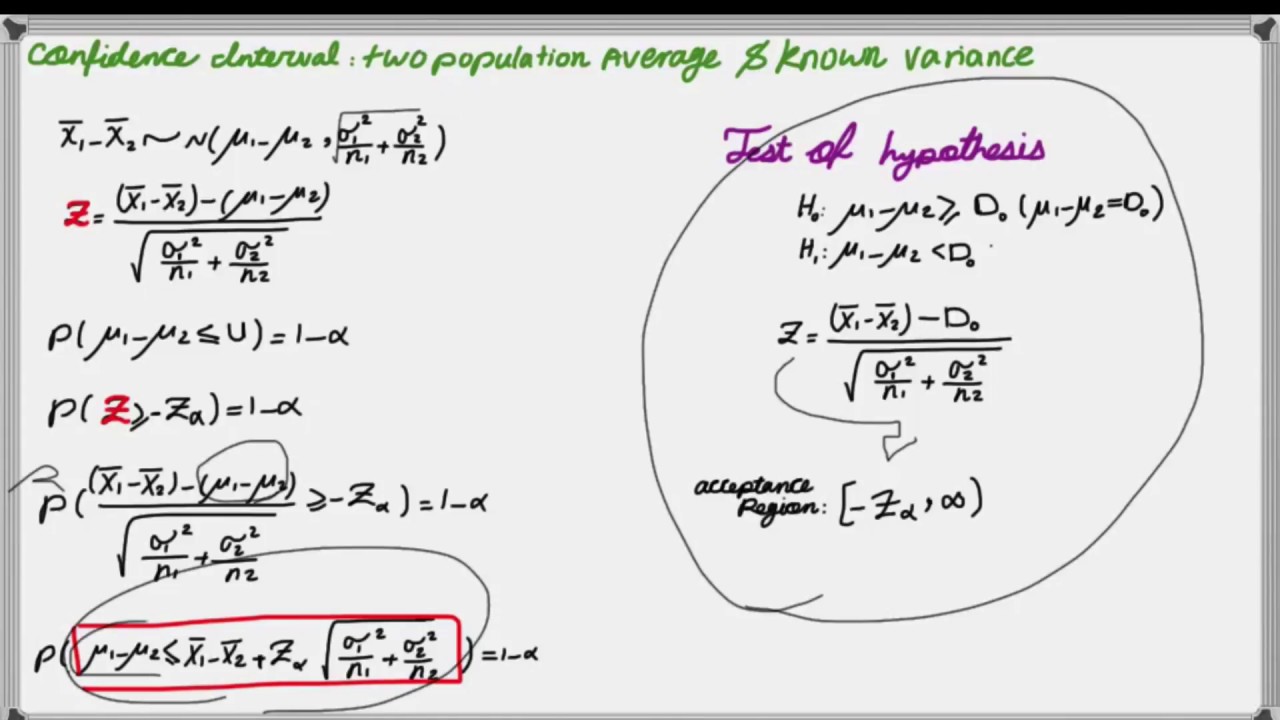 Confidence Interval: two population Average & Known variance
X̄₁-X̄₂ ~ N(μ₁-μ₂, √(σ₁²/n₁ + σ₂²/n₂))
Z = ((X̄₁-X̄₂)-(μ₁-μ₂)) / √(σ₁²/n₁ + σ₂²/n₂)
P(μ₁-μ₂ ≤ U) = 1-α
P(Z ≥ -Zα) = 1-α
P(((X̄₁-X̄₂)-(μ₁-μ₂)) / √(σ₁²/n₁ + σ₂²/n₂) ≥ -Zα) = 1-α
P(μ₁-μ₂ ≤ X̄₁-X̄₂ + Zα √(σ₁²/n₁ + σ₂²/n₂)) = 1-α
Test of hypothesis
H₀: μ₁-μ₂ ≥ D₀ (μ₁-μ₂ = D₀)
H₁: μ₁-μ₂ < D₀
Z = ((X̄₁-X̄₂) - D₀) / √(σ₁²/n₁ + σ₂²/n₂)
acceptance
Region: [-Zα, ∞)